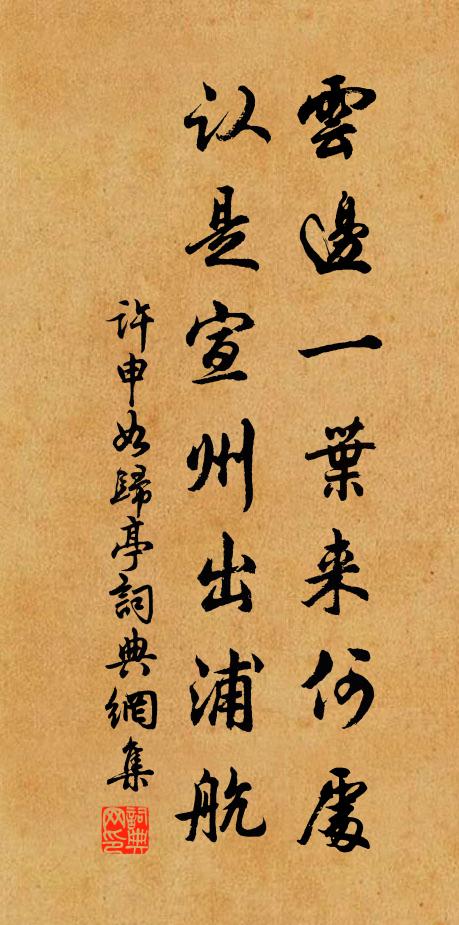 雲邊一葉来何處
认是宣州出浦航
許申如歸亭詞典網集
詞典网印